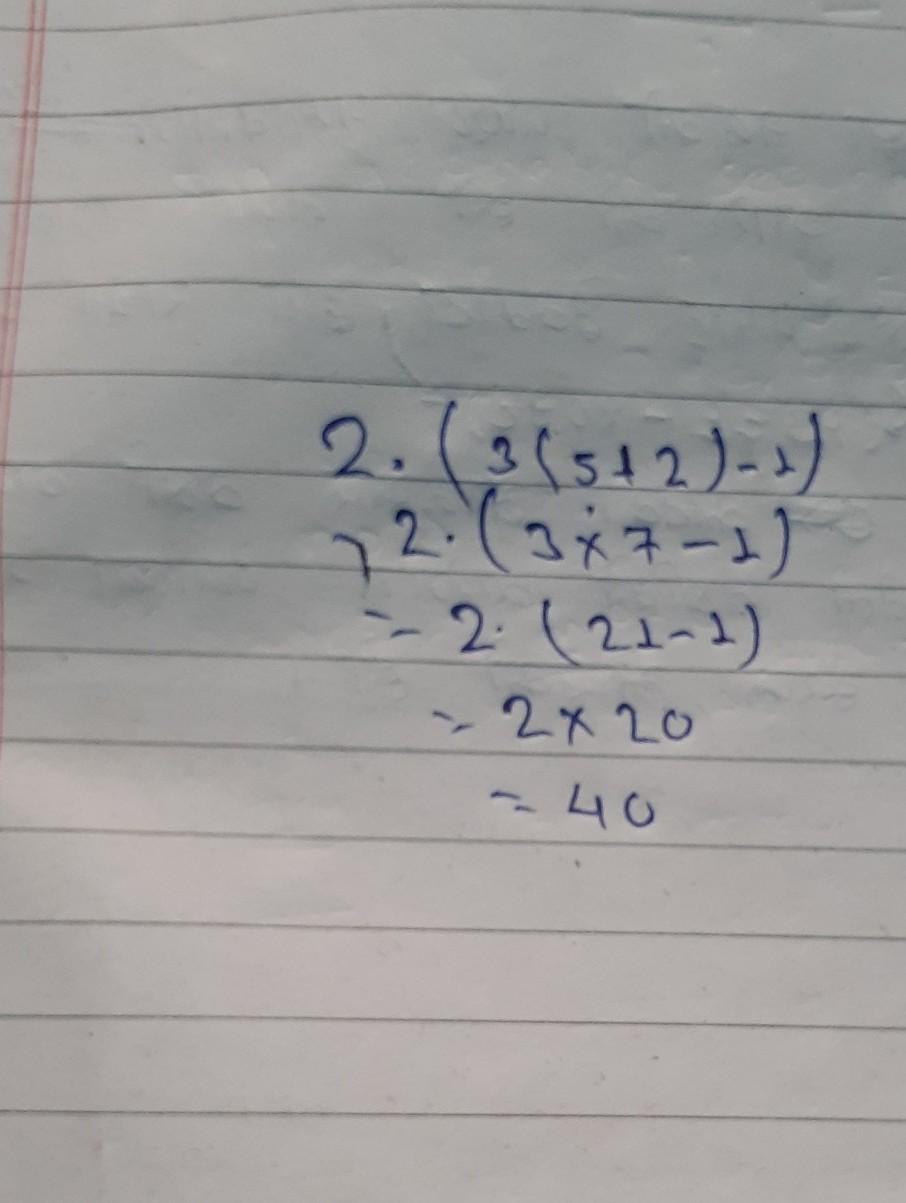 2. (3(5+2)-1)
2. (3×7-1)
= 2. (21-1)
= 2×20
= 40